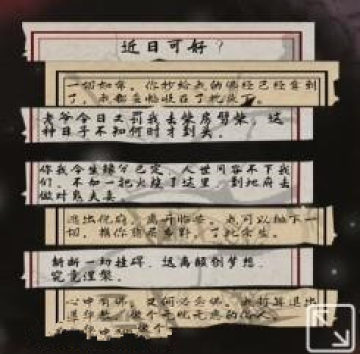 近日可好？
一切如常，你抄给我的佛经已经拿到
了，
老爷今日又罚我去柴房劈柴，这
种日子不知何时才到头。
你我今生缘分已定，人世间容不下我
们，不如一把火烧了这里，到地府去
做对鬼夫妻。
逃出侯府，离开临安，也可以抛下一
切，携你隐居乡野，了此余生。
斩断一切挂碍，远离颠倒梦想，
究竟涅槃。
心中有佛，又何必要佛。
做个无忧无虑的俗人。